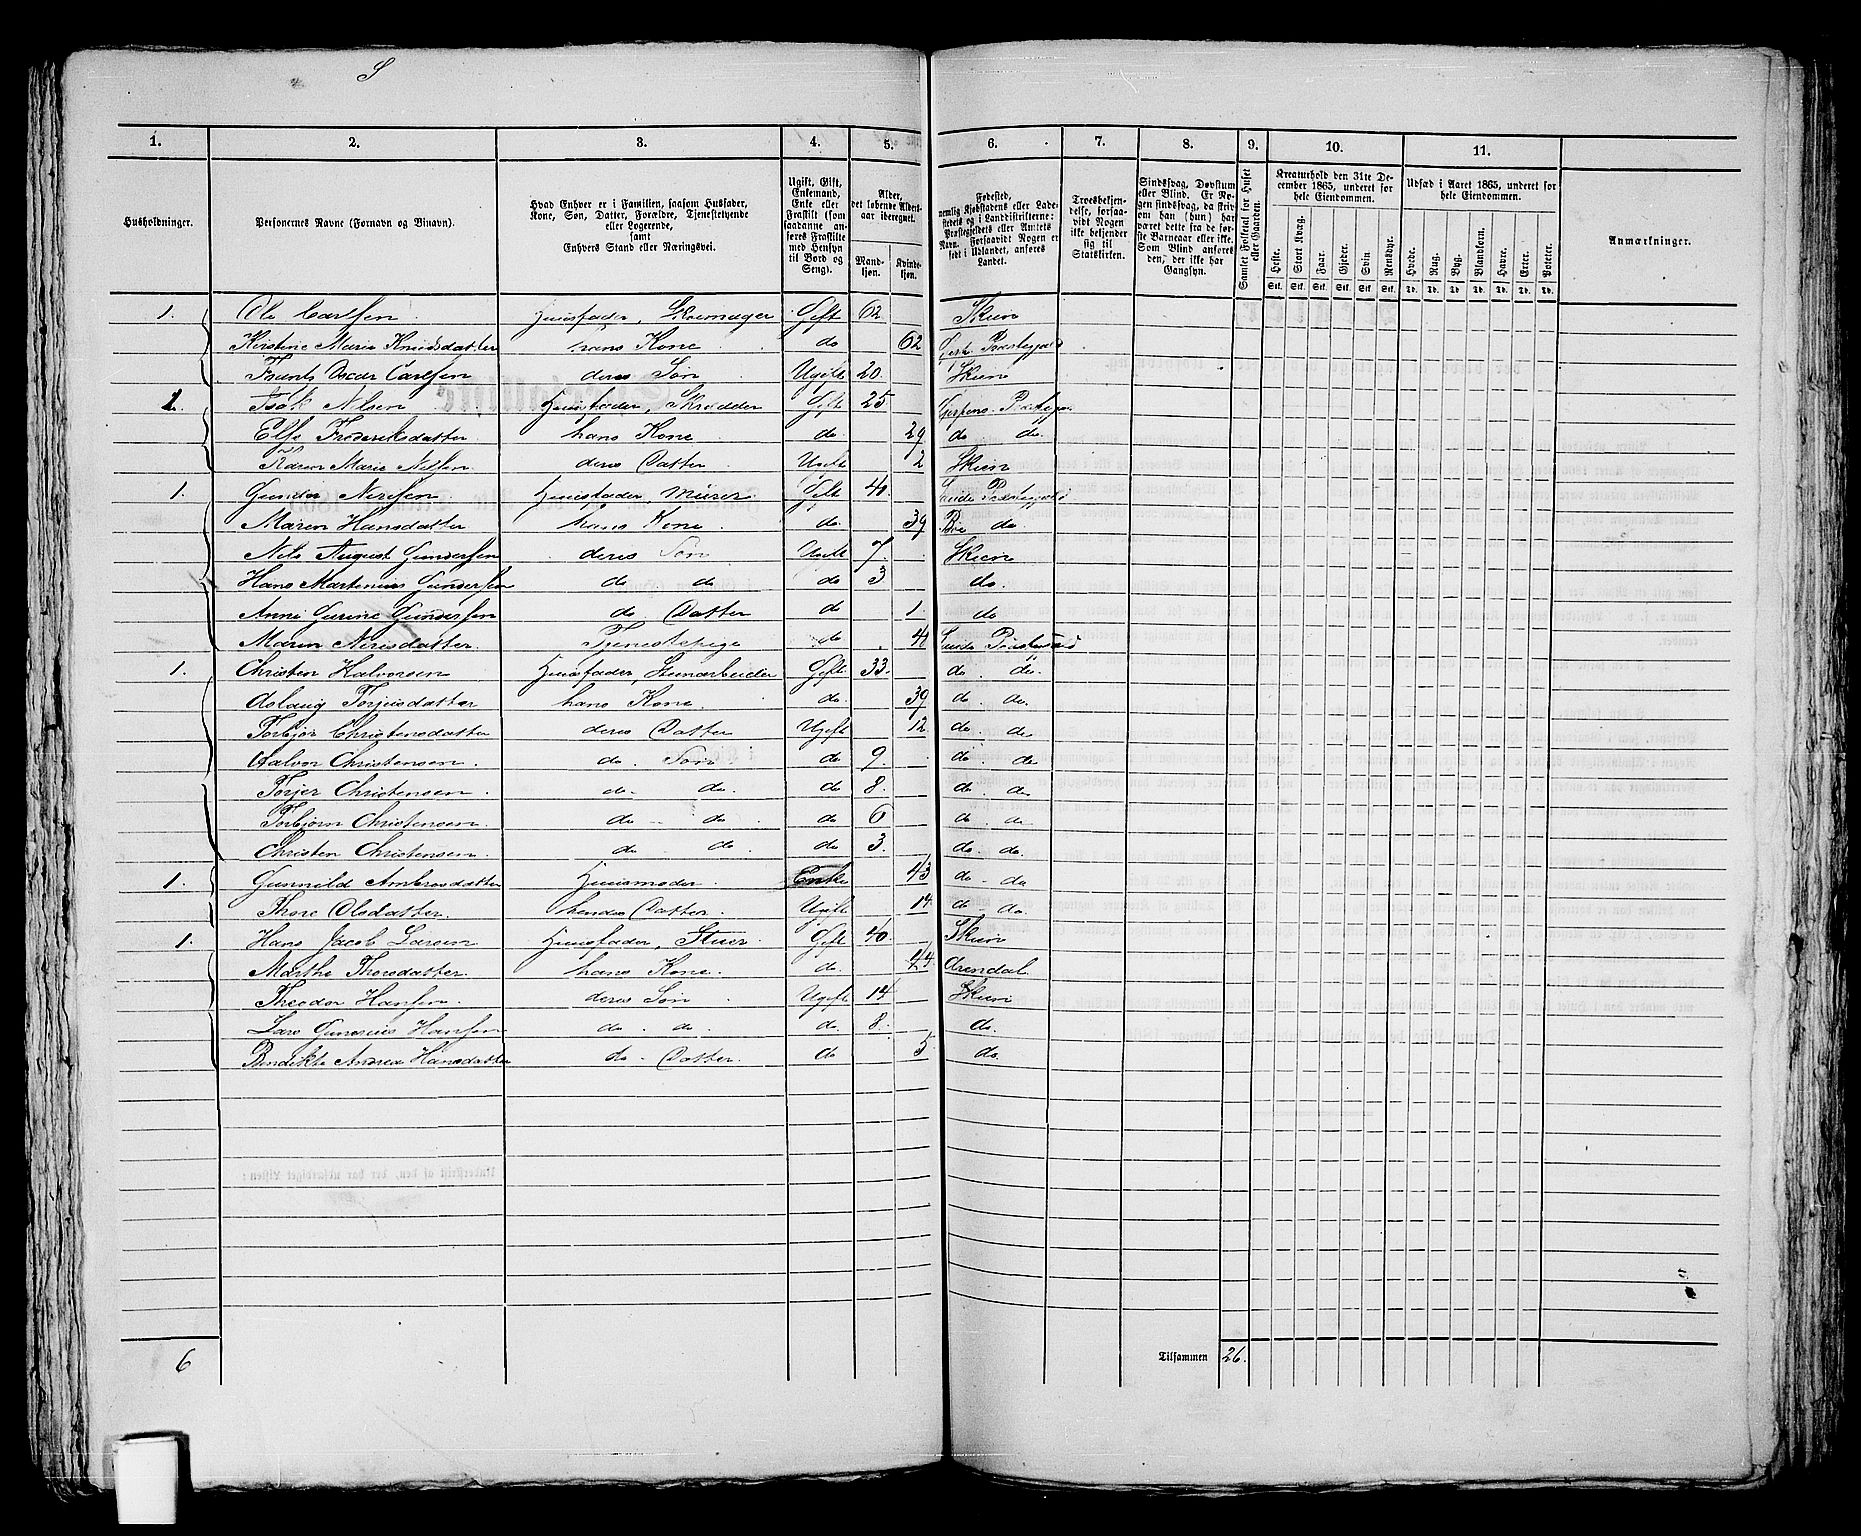 S
1. 2. 3. 4. 5. 6. 7. 8. 9. 10. 11.
Husholdninger.
Personernes Navne (Fornavn og Binavn).
Hvad Enhver er i Familien, saasom Husfader, Kone, Søn, Datter, Forældre, Tjenestetyende eller Logerende, samt Enhvers Stand eller Næringsvei.
Ugift, Gift, Enkemand, Enke eller Fraskilt (som saadanne anføres Fraskilte med Hensyn til Bord og Seng).
Alder, det løbende Aldersaar iberegnet.
Mandkjøn. Kvindekjøn.
Fødested, nemlig Kjøbstadens eller Ladestedets og i Landdistrikterne: Præstegjeldets eller Amtets Navn. Forsaavidt Nogen er født i Udlandet, anføres Landet.
Troesbekjendelse, forsaavidt Nogen ikke bekjender sig til Statskirken.
Sindssvag, Døvstum eller Blind. Er Nogen sindssvag, da skrives om han (hun) har været dette fra de første Barneaar eller ikke. Som Blind anføres den, der ikke har Gangsyn.
Samlet Folketal for Huset eller Gaarden.
Kreaturhold den 31te December 1865, underet for hele Eiendommen.
Heste. Stort Kvæg. Faar. Gjeder. Svin. Rensdyr.
Udsæd i Aaret 1865, underet for hele Eiendommen.
Hvede. Rug. Byg. Blandkorn. Havre. Erter. Poteter.
Stk. Stk. Stk. Stk. Stk. Stk. Td. Td. Td. Td. Td. Td. Td.
Anmærkninger.
1. Ole Carlsen Huusfader, Skomager Gift 62 Skien
Kirstine Maria Knudsdatter hans Kone do 62 Præstegjeld
Frants Oscar Carlsen deres Søn Ugift 20. Skien
1. Isak Nilsen Huusfader, Skrædder Gift 25 Gjerpens
Else Frederiksdatter hans Kone do. 29 do do.
Karen Marie Nilsen deres Datter Ugift 2 Skien
1. Gunder Nirisen Huusfader, Murer Gift 40. Præstegjeld
Maren Hansdatter hans Kone. do. 39 Bøe do.
Nils August Gundersen deres Søn Ugift 7 Skien
Hans Martinius Gundersen do do do 3 do.
Anne Gurine Gundersen do. Datter do 1. do
Maren Nirisdatter. Tjenestepige do 41
1. Christen Halvorsen Huusfader, Steenarbeider Gift 33. do. do.
Aslaug Torjusdatter hans Kone do. 39 do. do.
Torbjør Christensdatter deres Datter Ugift 12. do. do
Halvor Christensen. do. Søn do 9. do. do
Torjer Christensen. do. do. do 8. do. do
Torbjørn Christensen. do do do 6 do. do
Christen Christensen. do do. do 3. do. do.
1. Gunnild Ambrosdatter Huusmoder. Enke 43 do - do
Thone Olsdatter. hendes Datter. Ugift 14. do do.
1. Hans Jacob Larsen Huusfader, Stuer. Gift 40. Skien
Marthe Thorsdatter hans Kone. do. 44. Arendal
Theodor Hansen. deres Søn Ugift 14 Skien
Lars Hansen do. do. do. 8. do.
Bendikte Andrea Hansdatter do - Datter. do 5 do.
6 Tilsammen 26.